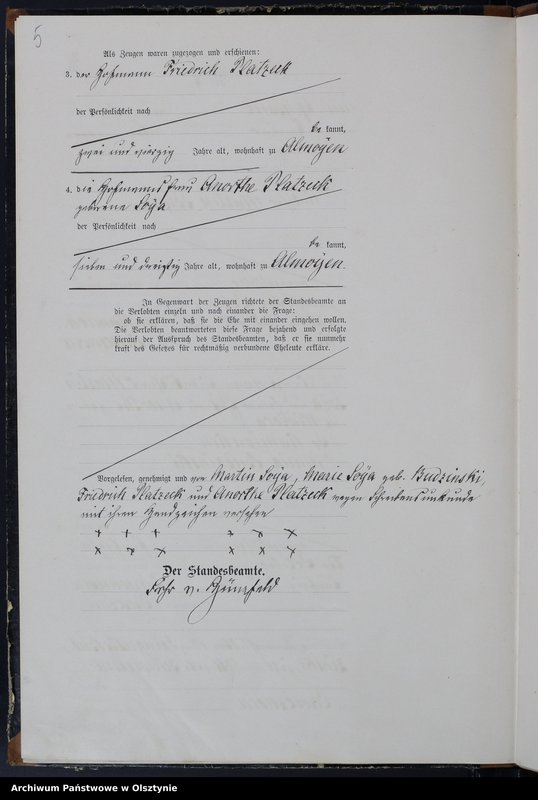 5
Als Zeugen waren zugezogen und erschienen:
3. der Hofmann Friedrich Platzeck
der Persönlichkeit nach
be kannt,
zwei und vierzig Jahre alt, wohnhaft zu Almoyen
4. die Hofmannsfrau Anorthe Platzeck
geborene Soija
der Persönlichkeit nach
be kannt,
sieben und dreißig Jahre alt, wohnhaft zu Almoyen.
In Gegenwart der Zeugen richtete der Standesbeamte an
die Verlobten einzeln und nach einander die Frage:
ob sie erklären, daß sie die Ehe mit einander eingehen wollen.
Die Verlobten beantworteten diese Frage bejahend und erfolgte
hierauf der Ausspruch des Standesbeamten, daß er sie nunmehr
kraft des Gesetzes für rechtmäßig verbundene Eheleute erkläre.
Vorgelesen, genehmigt und von Martin Soija, Marie Soija geb. Budzinski,
Friedrich Platzeck und Anorthe Platzeck wegen Schreibensunkunde
mit ihren Handzeichen versehen
+ + + + + +
+ + + + + +
Der Standesbeamte.
Frhr v.
Archiwum Państwowe w Olsztynie